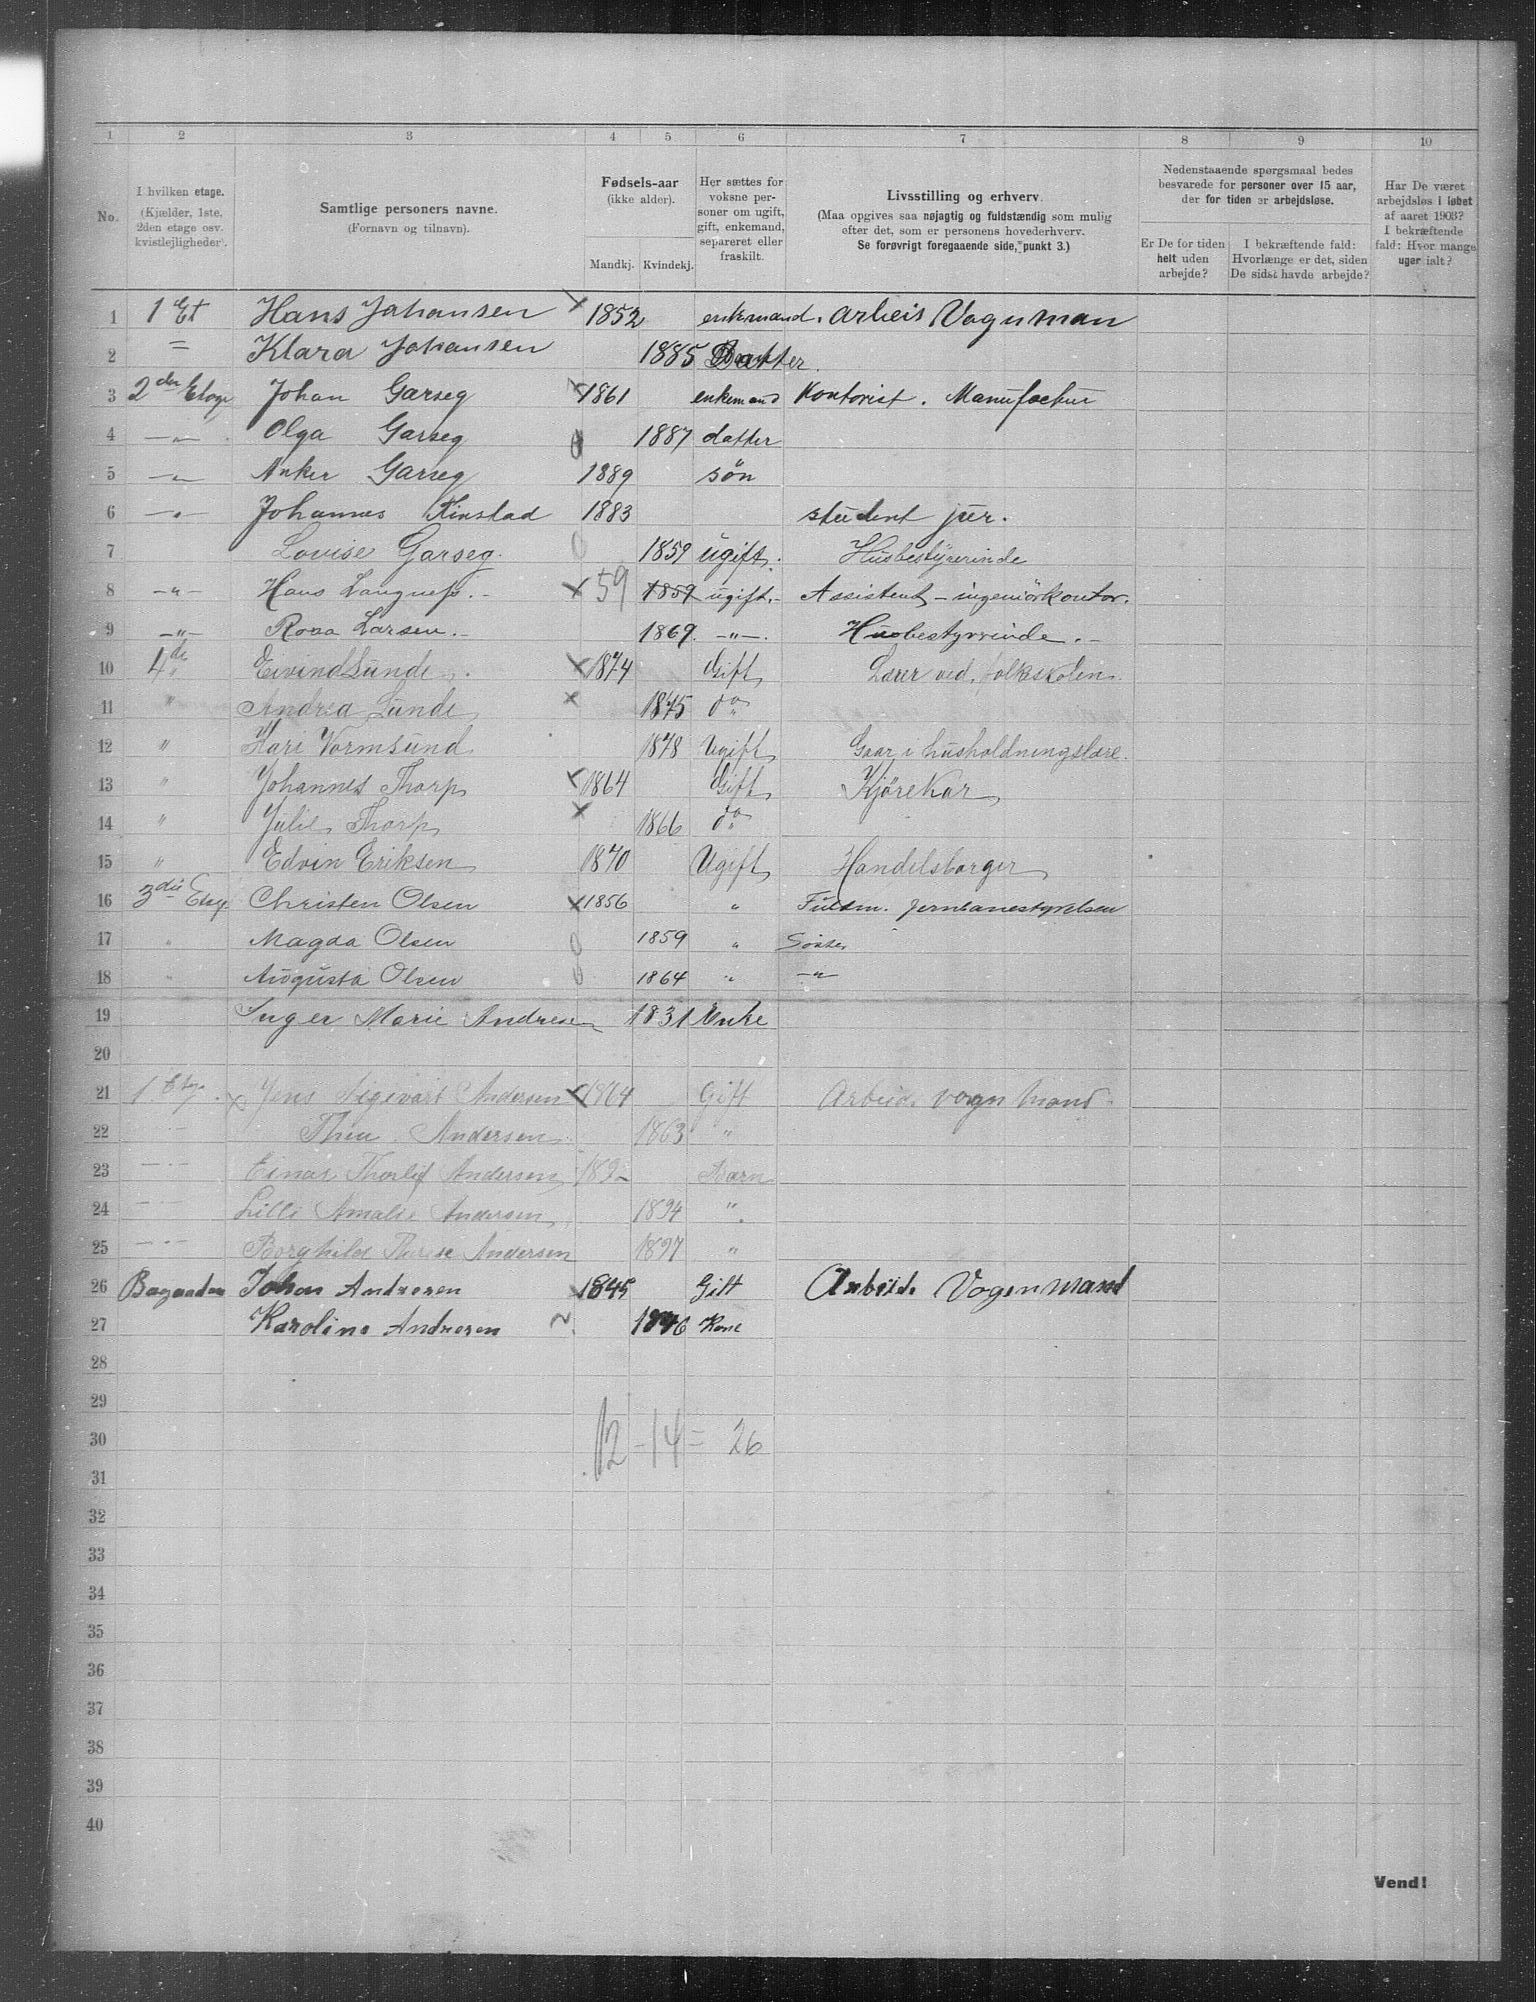 1 2 3 4 5 6 7 8 9 10
No.
I hvilken etage.
(Kjælder, 1ste,
2den etage osv.
kvistlejligheder).
Samtlige personers navne.
(Fornavn og tilnavn).
Fødsels-aar
(ikke alder).
Mandkj. Kvindekj.
Her sættes for
voksne per-
soner om ugift,
gift, enkemand,
separeret eller
fraskilt.
Livsstilling og erhverv.
(Maa opgives saa nøjagtig og fuldstændig som mulig
efter det, som er personens hovederhverv.
Se forøvrigt foregaaende side, punkt 3.)
Nedenstaaende spørgsmaal bedes
besvarede for personer over 15 aar,
der for tiden er arbejdsløse.
Er De for tiden
helt uden
arbejde?
I bekræftende fald:
Hvorlænge er det, siden
De sidst havde arbejde?
Har De været
arbejdsløs i løbet
af aaret 1903?
I bekræftende
fald: Hvor mange
uger ialt?
1 1 Et Hans Johansen x 1852 enkmand. Arbeis Vognman
2 = Klara Johansen 1885 Datter.
3 2den Etage Johan Garseg x 1861 enkemand Kontorist. Manufactur
4 -„- Olga Garseg 0 1887 datter
5 -„- Anker Garseg 1889 søn
6 -„- Johannes Finstad 1883 student jur.
7 Lovise Garseg. 0 1859 ugift. Husbestyrerinde
8 -„- Hans .- x 59 1859 ugift.- Assistent - ingeniørkontor.
9 -„- Rosa Larsen.- 1869. -„-. Husbestyrrinde.-
10 4de Eivind Lunde. x 1874 Gift Lærer ved folkskolen.
11 " Andrea Lunde x 1875 do
12 " Kari Vormsund 1878 Ugift Gaar i husholdningslære.
13 " Johannes Thorp x 1864 Gift Kjørekar
14 " Julie Thorp x 1866 do
15 " Edvin Eriksen 1870 Ugift Handelsborger
16 3die Etag Christen Olsen x 1856 „ Fuldm. jernbanestyrelsen
17 „ Magda Olsen 0 1859 „ Søster
18 „ Augusta Olsen 0 1864 „ -„-
19 Inger Marie Andresen 1831 Enke
20
21 1. Etg. x Jens Sigvart Andersen x 1864 Gift Arbeid. vogn Mand.
22 - - Thea Andersen 1863 "
23 - - Einar Thorlif Andersen 189- Barn
24 - - Lilli Amalie Andersen 1894 "
25 - - Borghild Therese Andersen 1897 "
26 Bagaarden Johan Andresen x 1845 Gift Arbeids Vogenmand
27 Karoline Andresen ~ 1846 Kone
28
29
30 12 - 14 = 26
31
32
33
34
35
36
37
38
39
40
Vend!